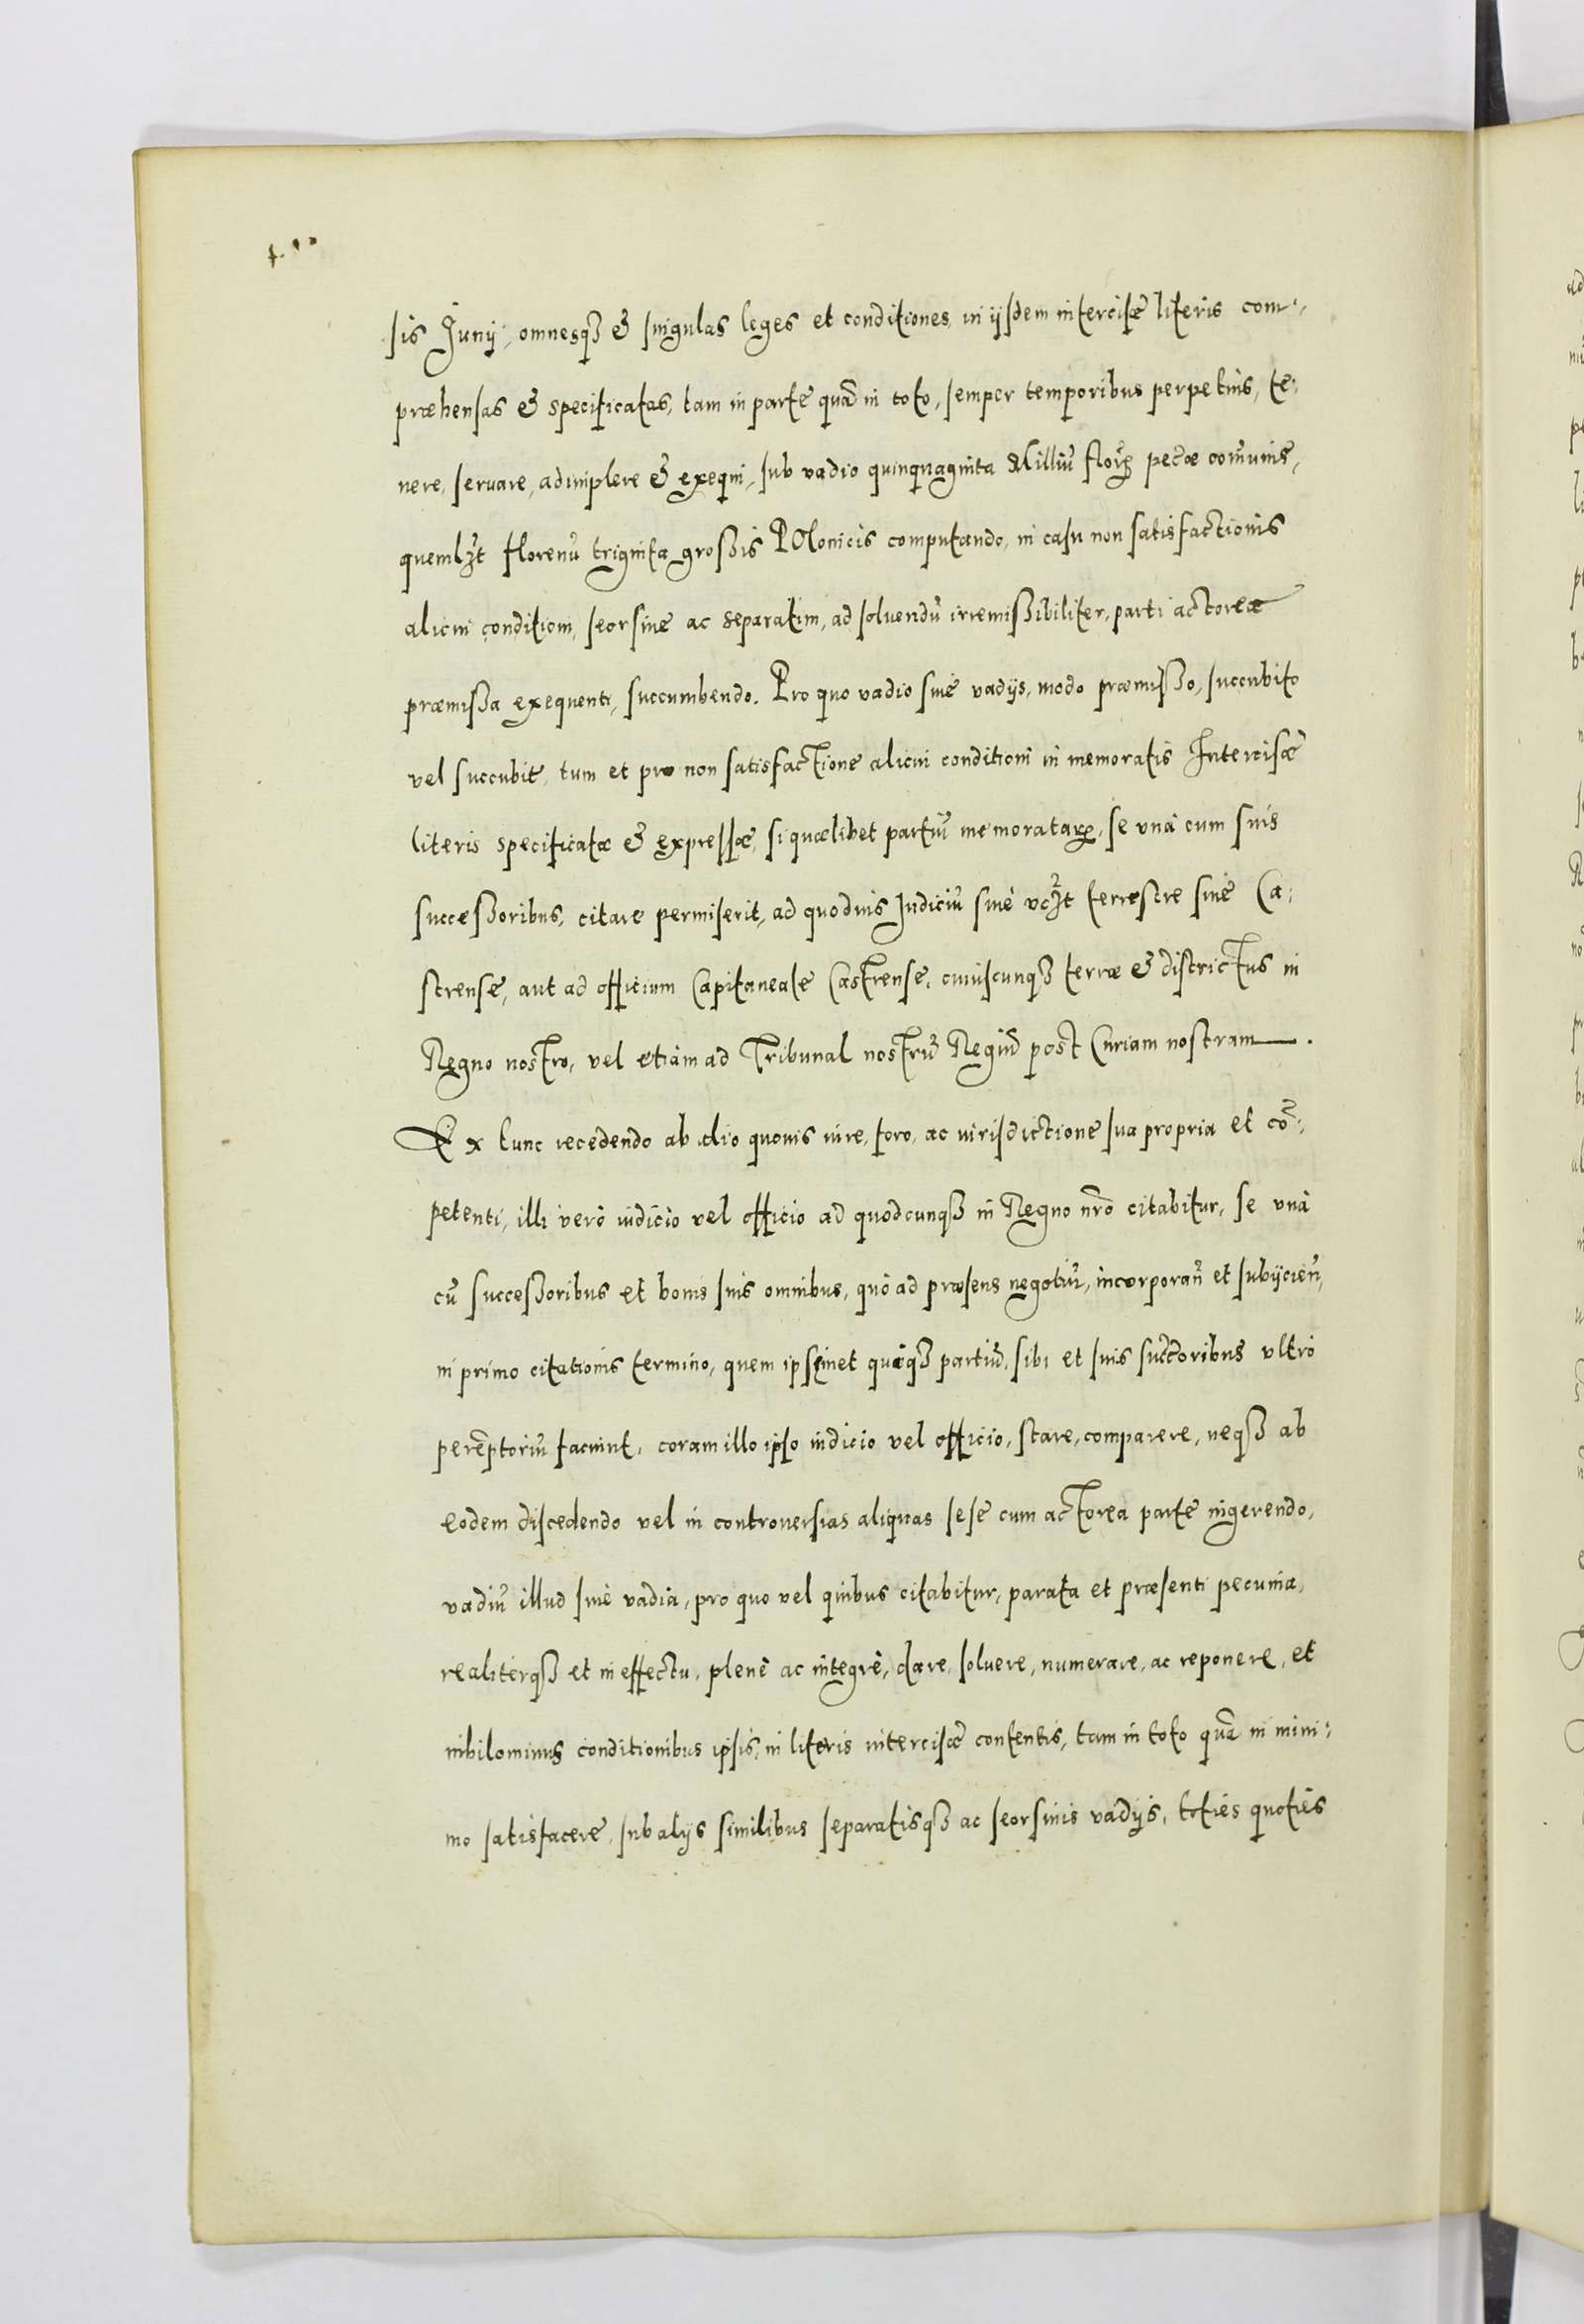 sis Junij, omnesq3 & singulas leges et conditiones in ijsdem intercisæ literis com-
præhensas & specificatas, tam in parte quā in toto, semper temporibus perpetuis, te-
nere, seruare, adimplere & exequi, sub vadio quinquaginta Milliū florꝝ pecūæ com̄unis,
quemlꝫt florenū triginta grossis Polonicis computando, in casu non satisfactionis
alicui conditioni, seorsiue ac separatim, ad soluendū irremissibiliter, parti actoreæ
præmissa exequenti, succumbendo. Pro quo vadio siuè vadijs, modo præmisso, succubito
vel succubit, tum et pro non satisfactione alicui conditioni in memoratis Intercisæ
literis specificatæ & expressæ, si quælibet partiū memorataꝝ, se vnà cum suis
successoribus, citare permiserit, ad quoduis Judiciū siuè vcꝫt terrestre siuè Ca-
strense, aut ad officium Capitaneale Castrense, cuiuscunq3 terræ & districtus in
Regno nostro, vel etiam ad Tribunal nostrū Regiū post Curiam nostram.
Ex tunc recedendo ab alio quouis iure, foro, ac iurisdictione sua propria et cō-
petenti, illi verò iudicio vel officio ad quodcunq3 in Regno nr̄o citabitur, se vnà
cū successoribus et bonis suis omnibus, quò ad præsens negotiū, incorporan̄ et subijcien̄,
in primo citationis termino, quem ipsemet quæq3 partiū, sibi et suis succ̄oribus vltrò
perēptoriū faciunt, coram illo ipso iudicio vel officio, stare, comparere, neq3 ab
eodem discedendo vel in controuersias aliquas sese cum actorea parte ingerendo,
vadiū illud siuè vadia, pro quo vel quibus citabitur, parata et præsenti pecunia,
realiterq3 et in effectu, plenè ac integrè, dare, soluere, numerare, ac reponere, et
nihilominus conditionibus ipsis, in literis intercisæ contentis, tam in toto quā in mini-
mo satisfacere, sub alijs similibus separatisq3 ac seorsiuis vadijs, toties quoties